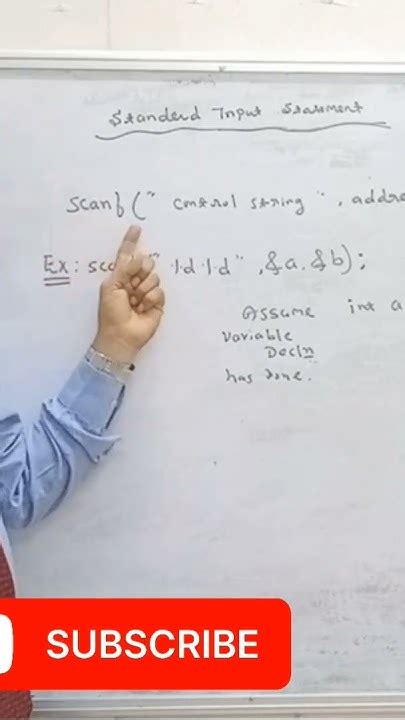 Standerd Input Statment
scanf (" control string ", addre
Ex : sc " %d %d " , &a, &b);
Assume int a
variable
Decln
has done.
SUBSCRIBE